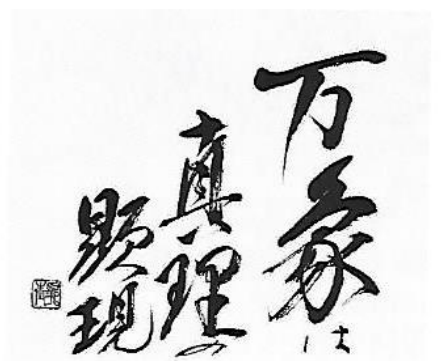 万象は
真理の
顕現